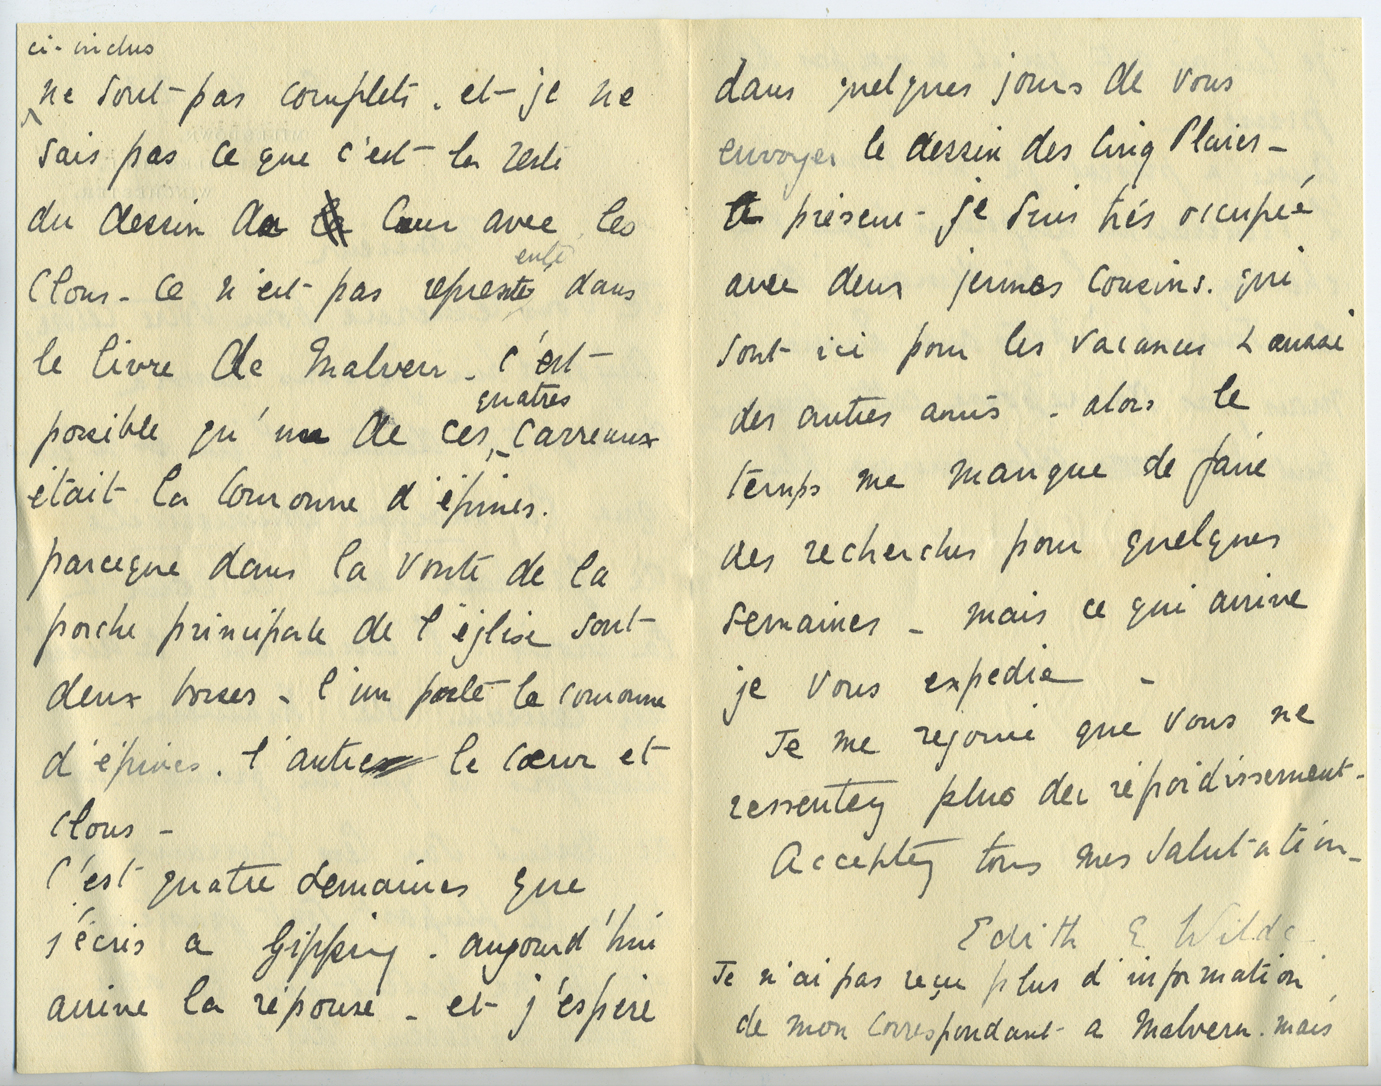 ci-inclus
ne sont pas complets. et je ne
sais pas ce que c'est la reste
du dessin du Cœur avec les
clous - ce n'est pas representé dans
le livre de Malvern - c'est
possible qu'un de ces quatres carreaux
était la couronne d'épines.
parceque dans la voute de la
porche principale de l'église sont
deux bosses - l'un porte la couronne
d'épines. l'autre le cœur et
clous -
C'est quatre semaines que
j'écris a Gipping - aujourd'hui
arrive la réponse - et j'espère
dans quelques jours de vous
envoyer le dessin des Cinq Plaies -
A présent - je suis très occupée
avec deux jeunes cousins. qui
sont ici pour les vacances & aussi
des autres amis - alors le
temps me manque de faire
des recherches pour quelques
semaines - mais ce qui arrive
je vous expedie -
Je me rejouie que vous ne
ressentez plus du réfoidissement -
Acceptez tous mes salutation -
Edith E Wilde
Je n'ai pas reçu plus d'information
de mon correspondant a Malvern. mais